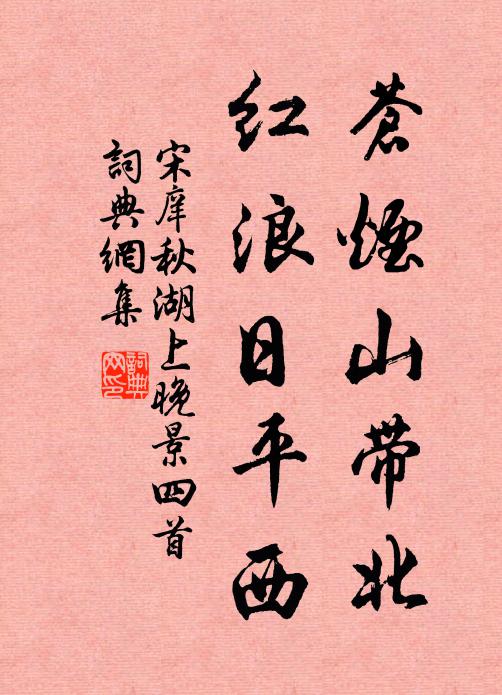 蒼煙山带北
紅浪日平西
宋庠秋湖上晚景四首
詞典網集
詞典網印